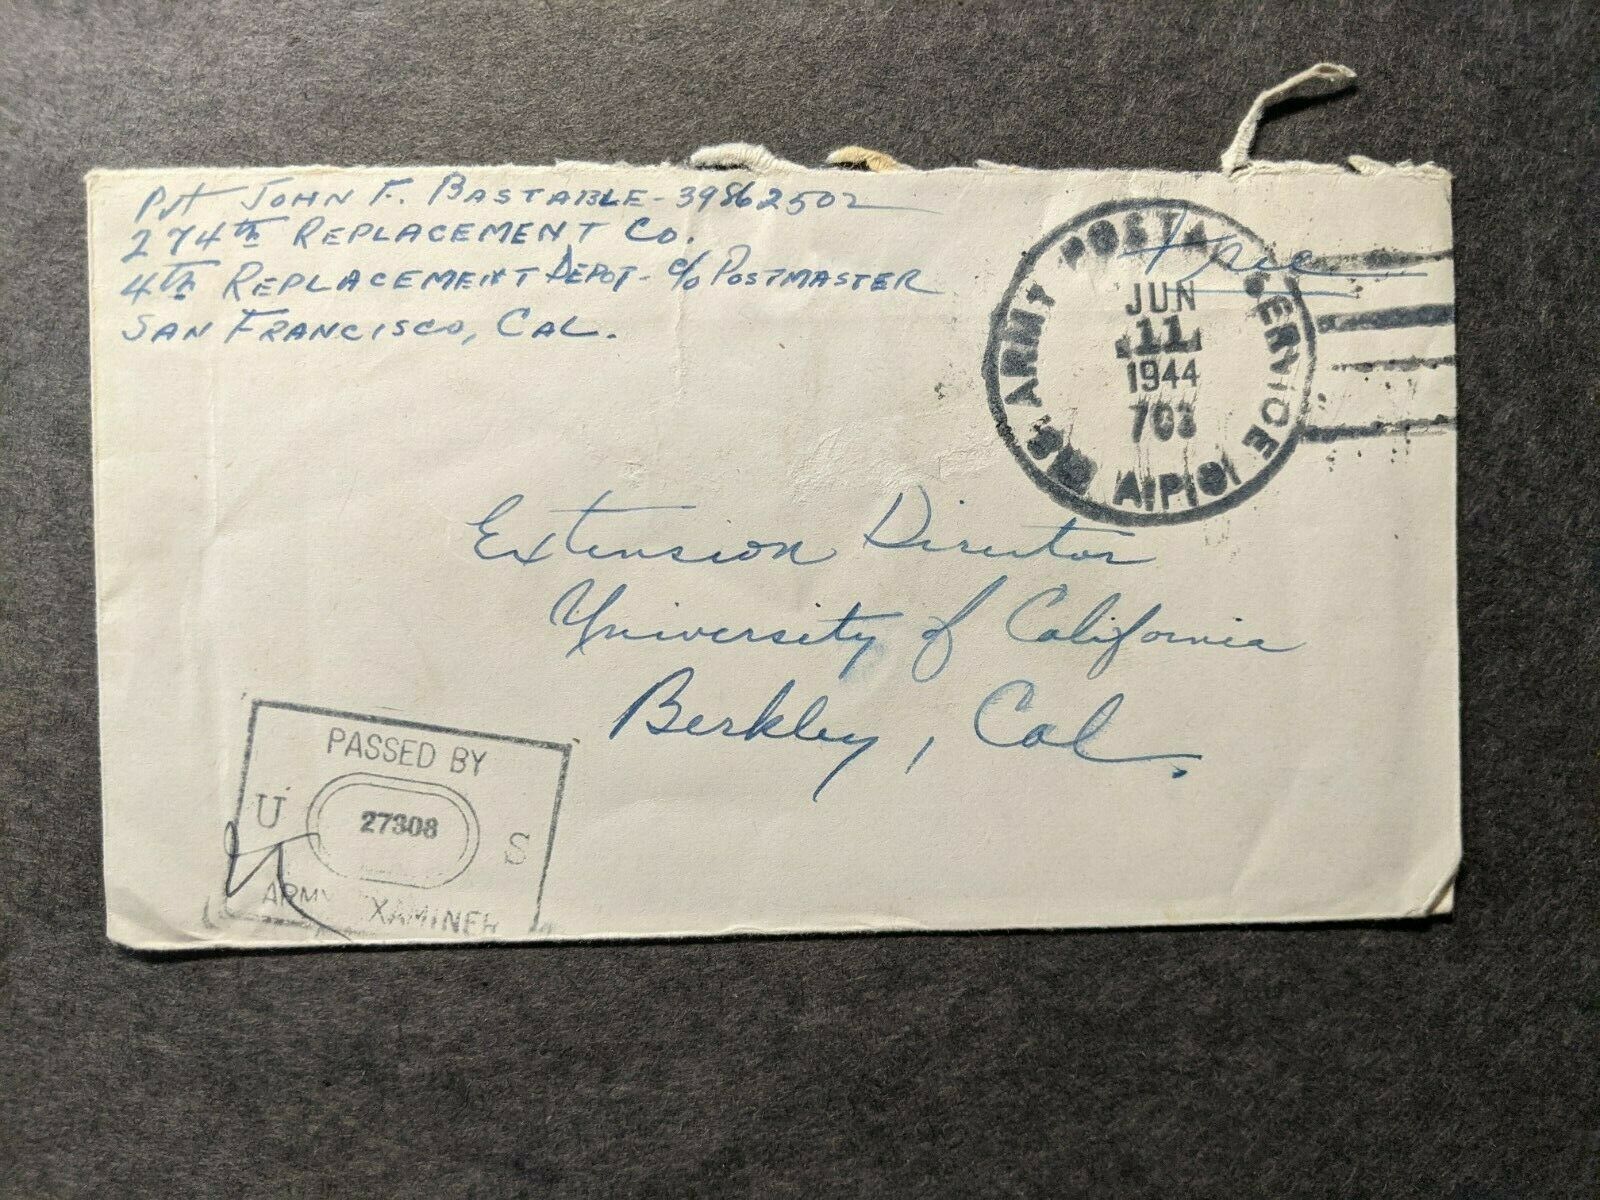 Pvt John F. Bastable - 39862502
274th Replacement Co.
4th Replacement Depot - c/o Postmaster
San Francisco, Cal.
Free
US ARMY POSTAL SERVICE
JUN
11
1944
703
A.P.O.
Extension Director
University of California
Berkley, Cal.
PASSED BY
U 27308 S
ARMY EXAMINER